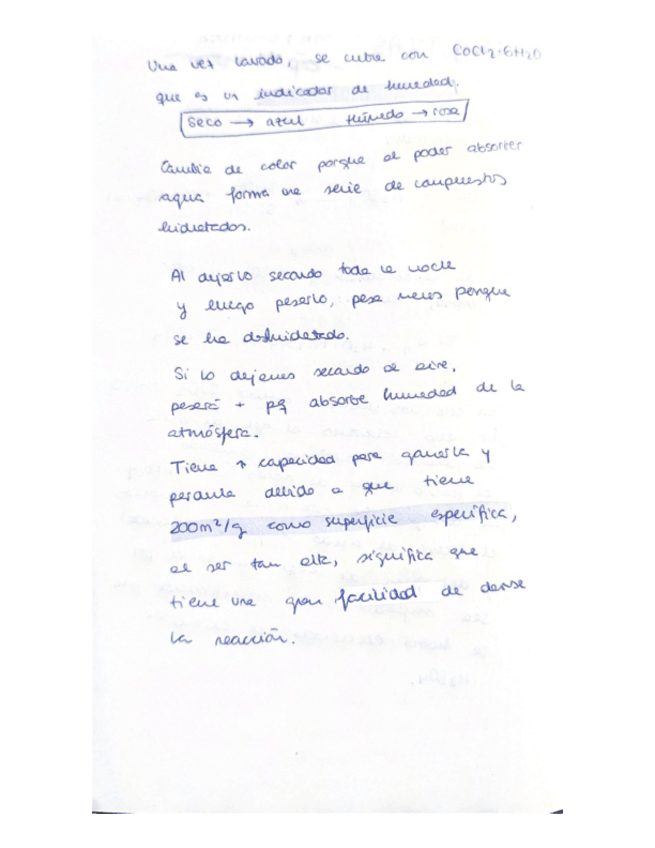 Una vez lavado, se cubre con CoCl2·6H2O
que es un indicador de humedad.
Seco → azul Húmedo → rosa
Cambia de color porque al poder absorber
agua forma una serie de compuestos
hidratados.
Al dejarlo secando toda la noche
y luego pesarlo, pesa menos porque
se ha deshidratado.
Si lo dejamos secando al aire,
pesará + pq absorbe humedad de la
atmósfera.
Tiene ↑ capacidad para ganarla y
perderla debido a que tiene
200m²/g como superficie específica,
al ser tan alta, significa que
tiene una gran facilidad de darse
la reacción.